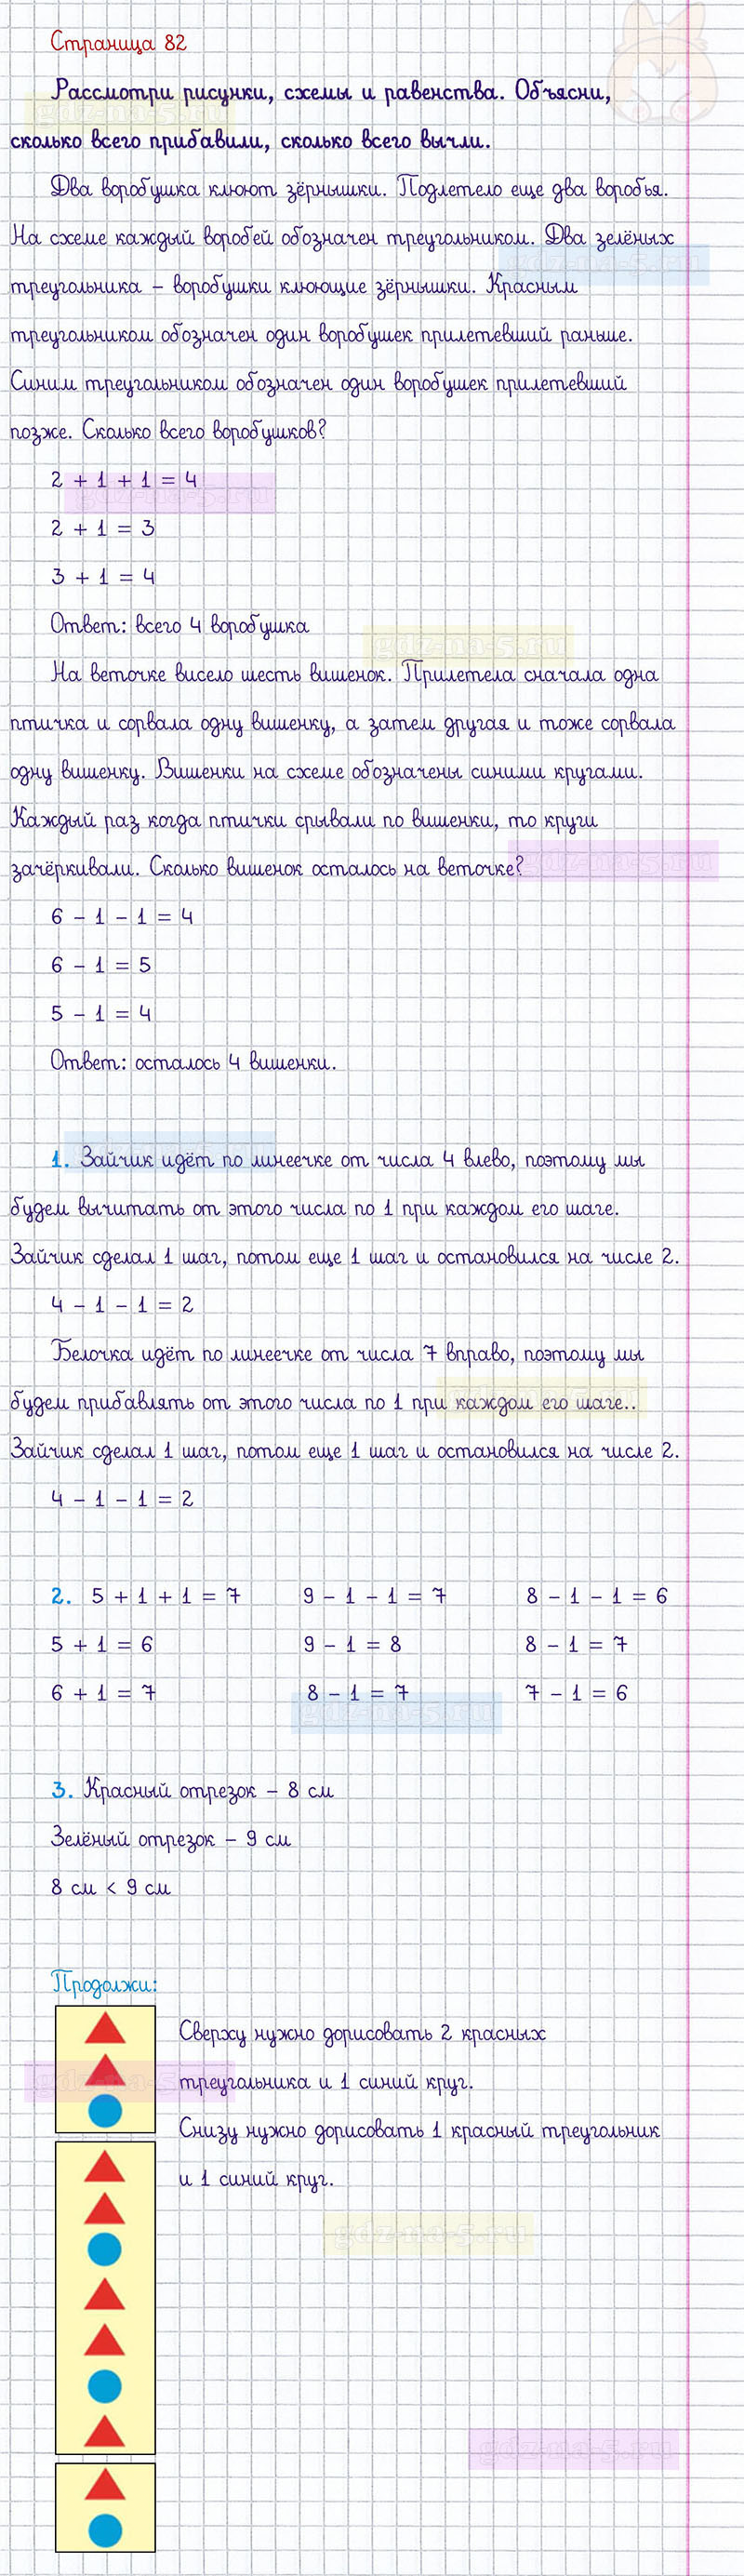 Страница 82
Рассмотри рисунки, схемы и равенства. Объясни,
сколько всего прибавили, сколько всего вычли.
Два воробушка клюют зёрнышки. Подлетело еще два воробья.
На схеме каждый воробей обозначен треугольником. Два зелёных
треугольника – воробушки клюющие зёрнышки. Красным
треугольником обозначен один воробушек прилетевший раньше.
Синим треугольником обозначен один воробушек прилетевший
позже. Сколько всего воробушков?
2 + 1 + 1 = 4
gdz-na-5.ru
2 + 1 = 3
3 + 1 = 4
Ответ: всего 4 воробушка
gdz-na-5.ru
На веточке висело шесть вишенок. Прилетела сначала одна
птичка и сорвала одну вишенку, а затем другая и тоже сорвала
одну вишенку. Вишенки на схеме обозначены синими кругами.
Каждый раз когда птички срывали по вишенки, то круги
зачёркивали. Сколько вишенок осталось на веточке?
gdz-na-5.ru
6 – 1 – 1 = 4
6 – 1 = 5
5 – 1 = 4
Ответ: осталось 4 вишенки.
1. Зайчик идёт по линеечке от числа 4 влево, поэтому мы
будем вычитать от этого числа по 1 при каждом его шаге.
Зайчик сделал 1 шаг, потом еще 1 шаг и остановился на числе 2.
4 – 1 – 1 = 2
Белочка идёт по линеечке от числа 7 вправо, поэтому мы
будем прибавлять от этого числа по 1 при каждом его шаге..
Зайчик сделал 1 шаг, потом еще 1 шаг и остановился на числе 2.
4 – 1 – 1 = 2
2. 5 + 1 + 1 = 7 9 – 1 – 1 = 7 8 – 1 – 1 = 6
5 + 1 = 6 9 – 1 = 8 8 – 1 = 7
6 + 1 = 7 8 – 1 = 7 7 – 1 = 6
gdz-na-5.ru
3. Красный отрезок – 8 см
Зелёный отрезок – 9 см
8 см < 9 см
Продолжи:
Сверху нужно дорисовать 2 красных
треугольника и 1 синий круг.
gdz-na-5.ru
Снизу нужно дорисовать 1 красный треугольник
и 1 синий круг.
gdz-na-5.ru
gdz-na-5.ru